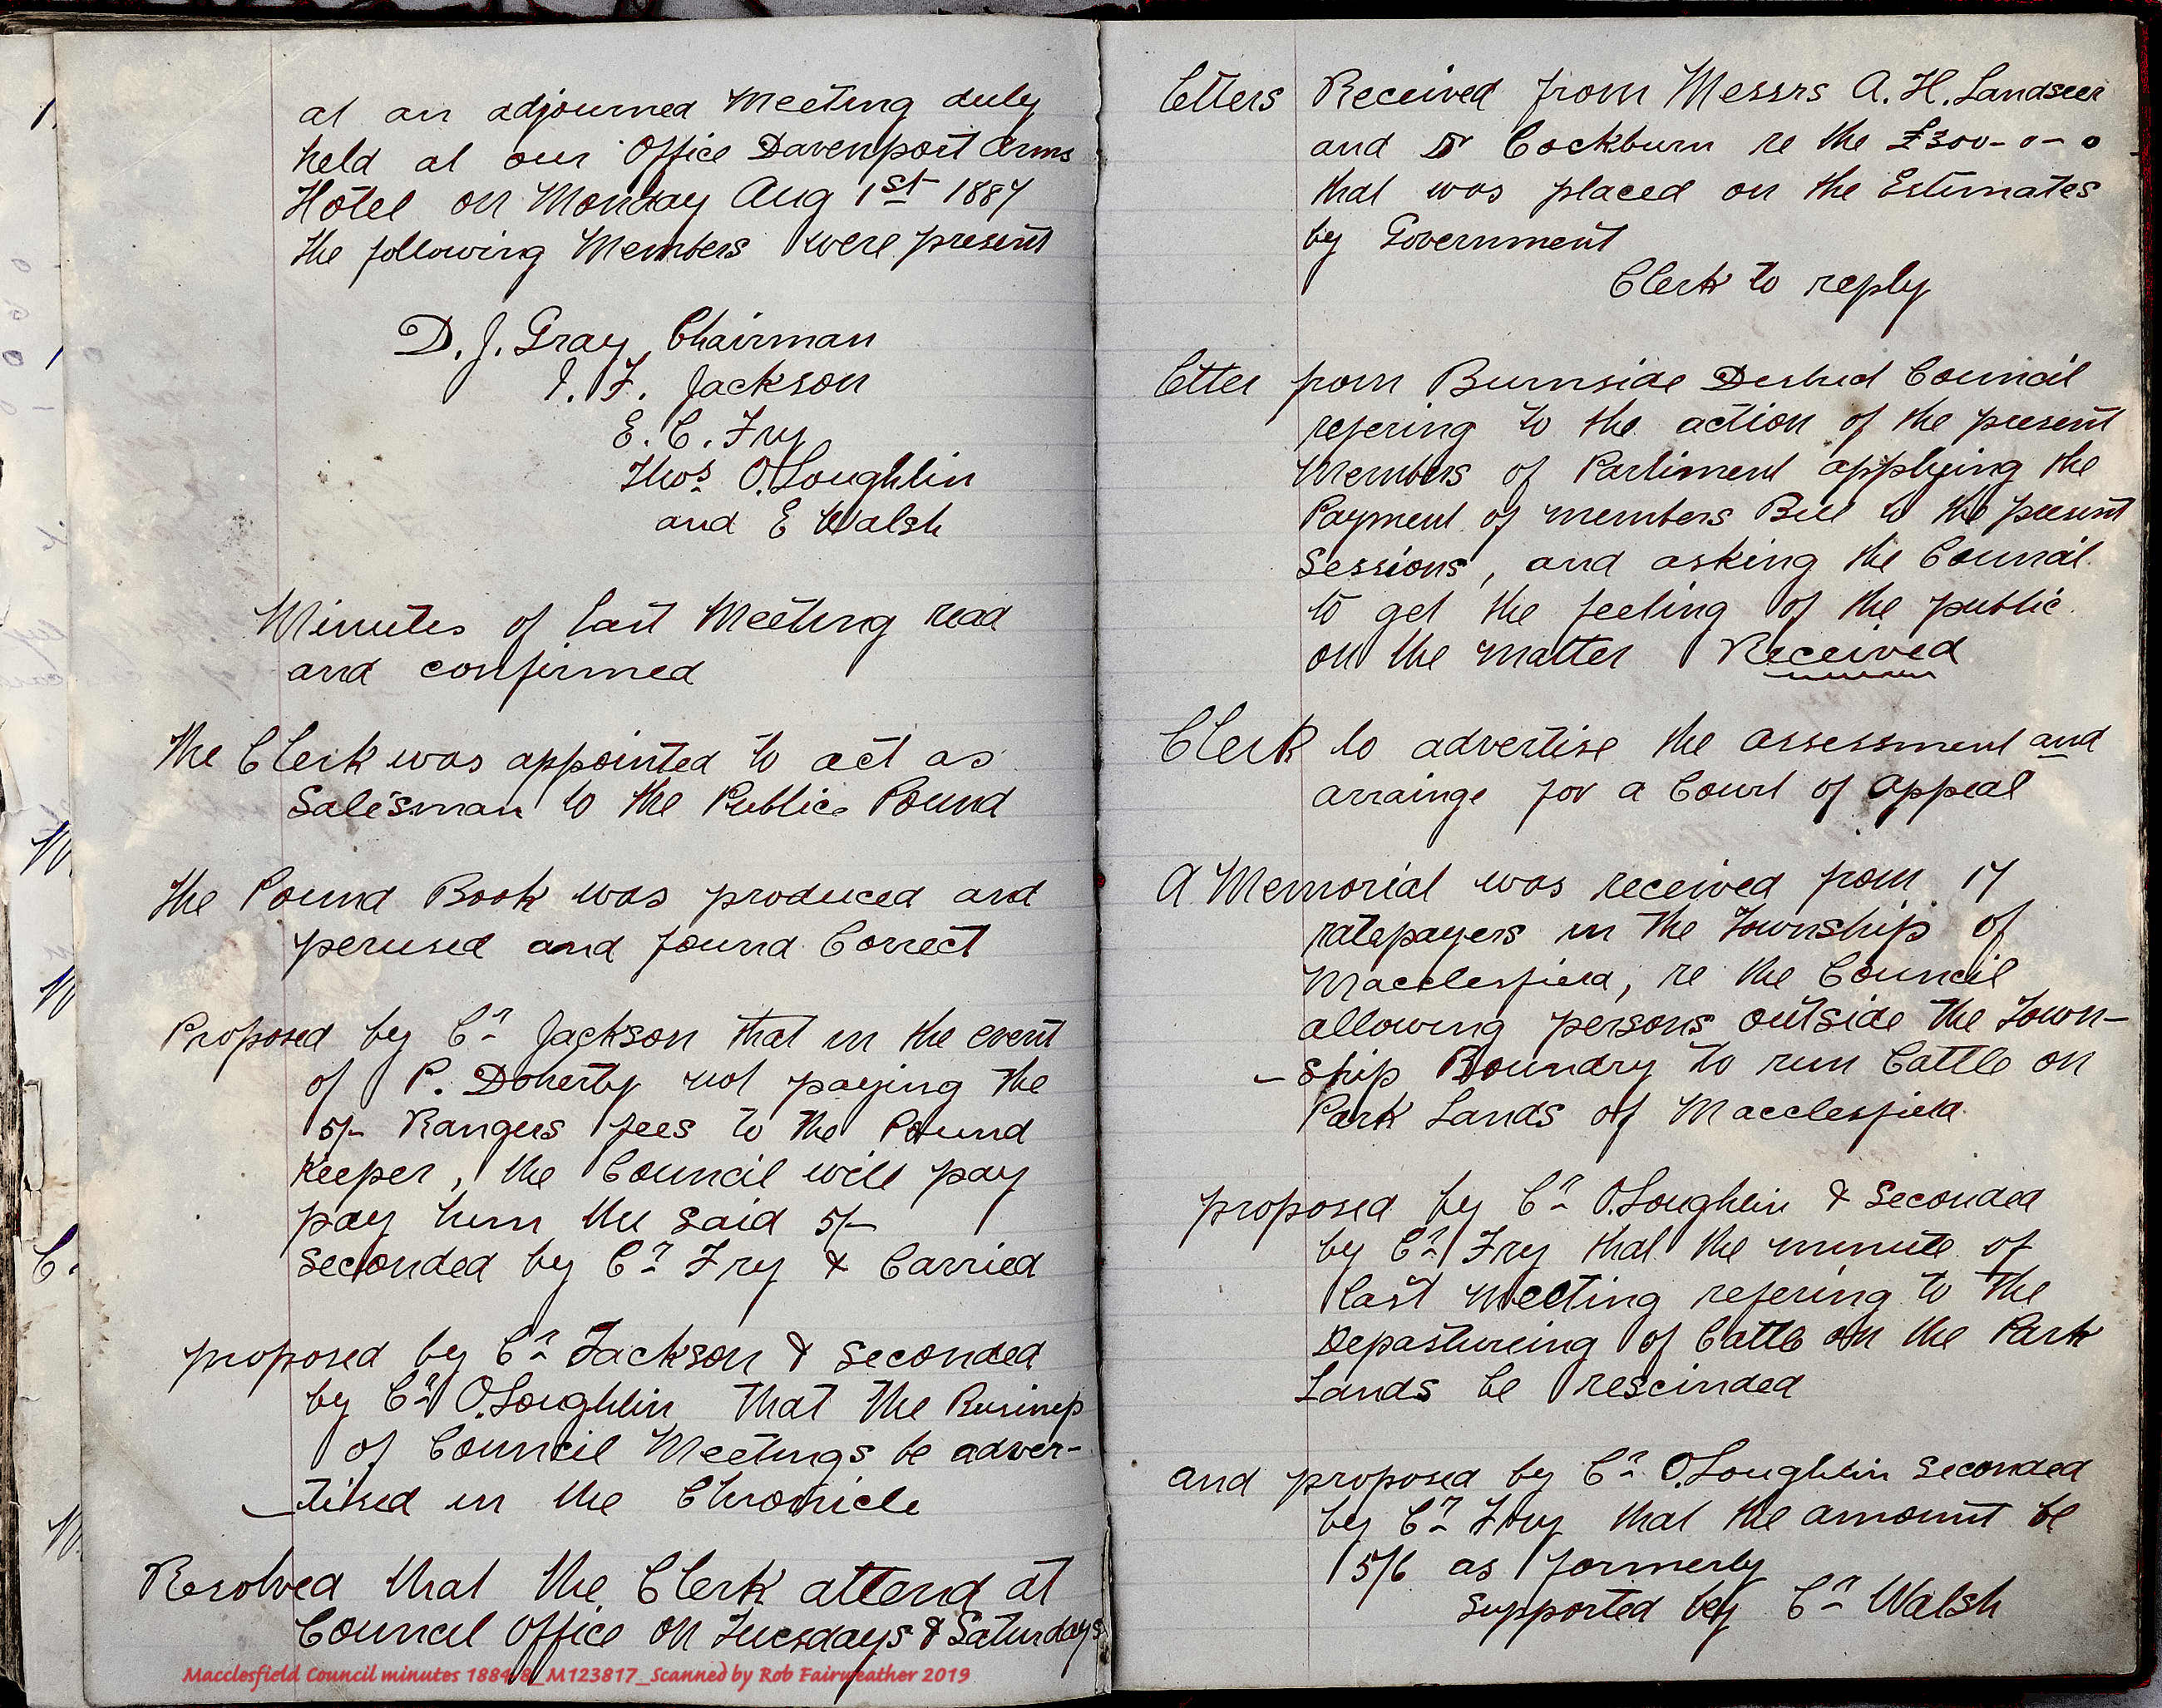 at an adjourned Meeting duly
held at our Office Davenport Arms
Hotel on Monday Aug 1st 1887
the following Members were present
D. J. Gray Chairman
I. F. Jackson
E. C. Fry
Thos O.Loughlin
and E Walsh
Minutes of last Meeting read
and confirmed
The Clerk was appointed to act as
Salesman to the Public Pound
The Pound Book was produced and
perused and found Correct
Proposed by Cr Jackson that in the event
of P. Doherty not paying the
5/- Rangers fees to the Pound
Keeper, the Council will pay
pay him the said 5/-
Seconded by Cr Fry & Carried
proposed by Cr Jackson & Seconded
by Cr O.Loughlin that the Business
of Council Meetings be adver-
-tised in the Chronicle
Resolved that the Clerk attend at
Council Office on Tuesdays & Saturdays
Macclesfield Council minutes 1884-8_M123817_Scanned by Rob Fairweather 2019
letters Received from Messrs A. H. Landseer
and Dr Cockburn re the £300-0-0
that was placed on the Estimates
by Government
Clerk to reply
letter from Burnside District Council
refering to the action of the present
Members of Parliment applying the
Payment of members Bill to the present
Sessions, and asking the Council
to get the feeling of the public
on the matter Received
Clerk to advertise the assessment and
arrainge for a Court of Appeal
A Memorial was received from 17
ratepayers in the Township of
Macclesfield, re the Council
allowing persons outside the Town-
-ship Boundry to run Cattle on
Park Lands of Macclesfield
proposed by Cr O.Loughlin & Seconded
by Cr Fry that the minute of
last meeting refering to the
Depasturing of Cattle on the Park
Lands be rescinded
and proposed by Cr O.Loughlin Seconded
by Cr Fry that the amount be
5/6 as formerly
supported by Cr Walsh